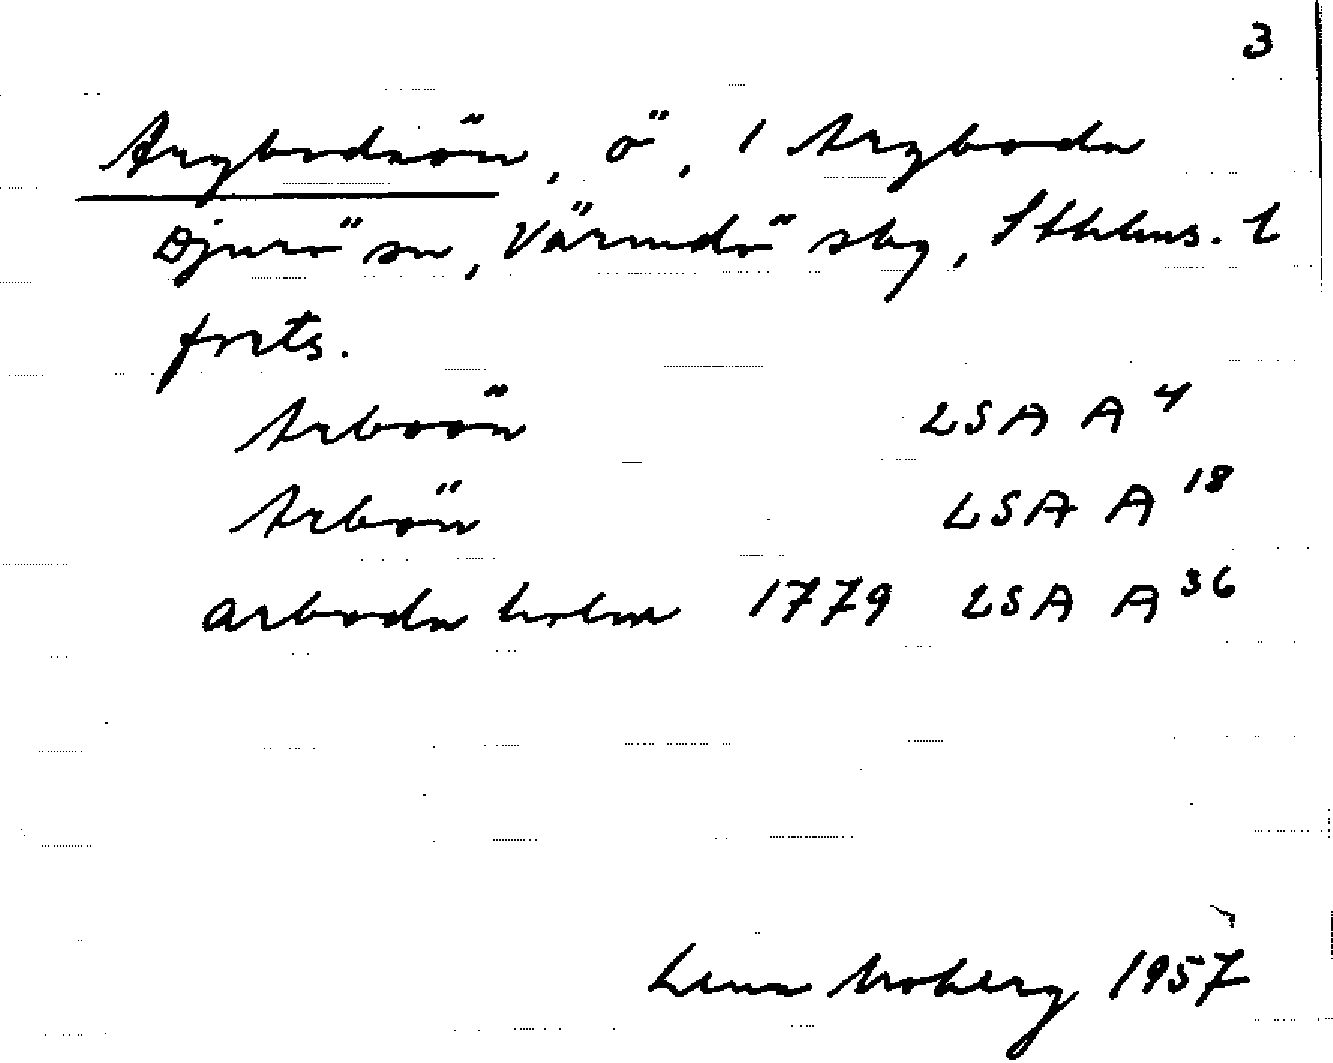 3
Argbodaön, ö, 1 Argboda
Djurö sn, Värmdö sbg, Sthlms. l
forts.
Arboön LSA A 4
Arbön LSA A 18
arboda holm 1779 LSA A 36
Lena Moberg 1957